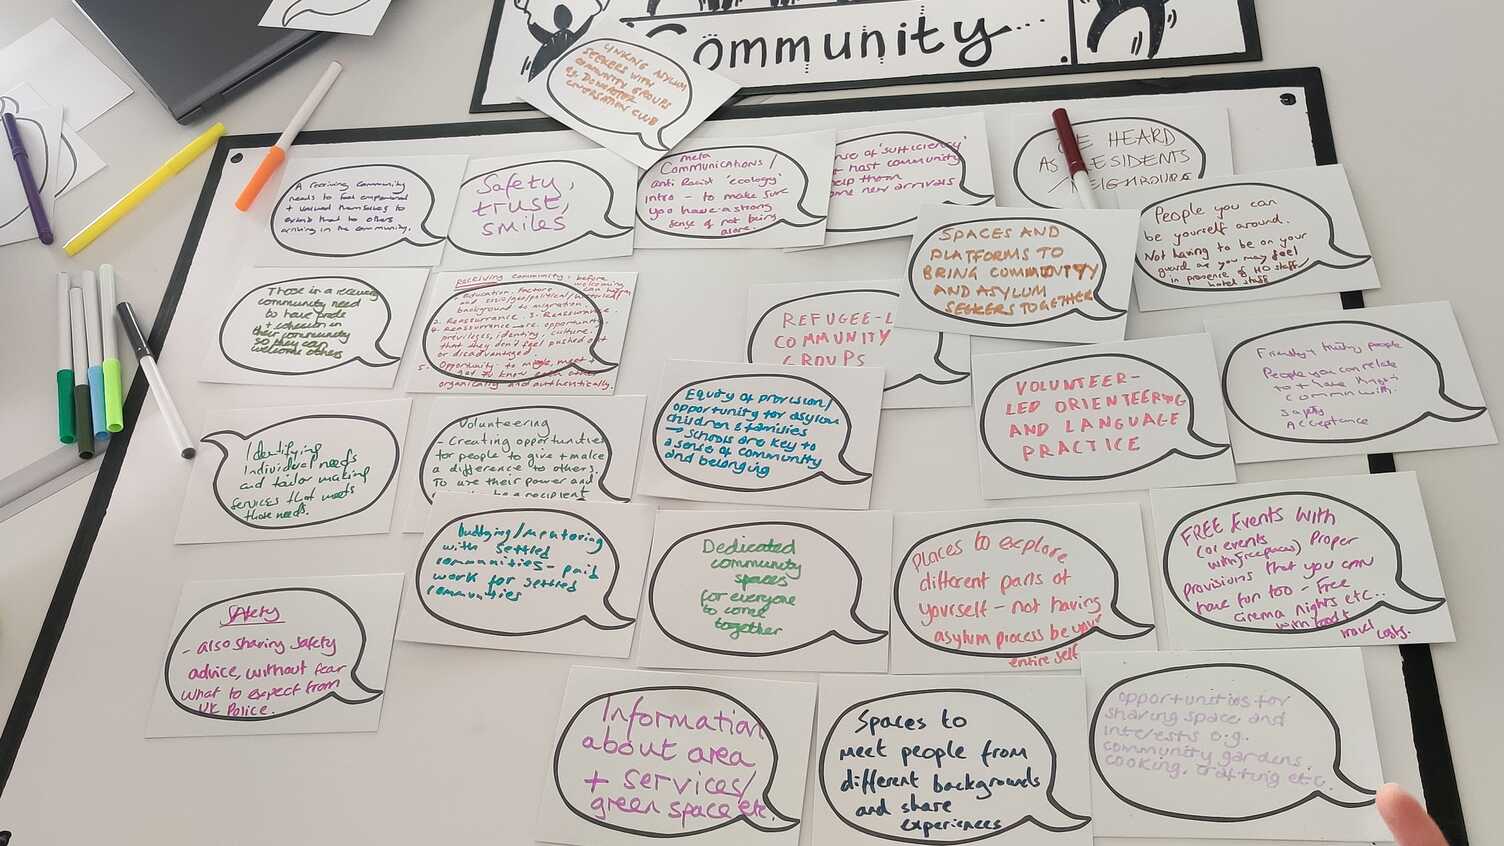 Community
LINKING ASYLUM
SEEKERS WITH
COMMUNITY GROUPS
CONVERSATION CLUB
A receiving community
needs to feel empowered
+ valued themselves to
extend that to others
arriving in the community.
Safety,
trust,
smiles
Meta
Communications /
anti Racist 'ecology'
intro - to make sure
you have a strong
sense of not being
alone.
of 'sufficiency'
host community
help them
new arrivals
BE HEARD
AS RESIDENTS
NEIGHBOURS
People you can
be yourself around.
Not having to be on your
guard as you may feel
in presence of HO staff/
hotel staff
SPACES AND
PLATFORMS TO
BRING COMMUNITY
AND ASYLUM
SEEKERS TOGETHER
Those in a receiving
community need
to have pride
+ cohesion in
their community
so they can
welcome others
Receiving community: before
welcoming
can happen
education, factors
and social/geo/political/historical
background to migration.
2. Reassurance. 3. Reassurance.
4. Reassurance - are opportunity
privileges, identity, culture
that they don't feel pushed out
or disadvantaged.
5. Opportunity to mingle, meet +
get to know each other
organically and authentically.
REFUGEE-L
COMMUNITY
GROUPS
VOLUNTEER-
LED ORIENTEERING
AND LANGUAGE
PRACTICE
Friendly + trusty people
People you can relate
to + have things
common with.
Safety
Acceptance
Identifying
Individual needs
and tailor making
services that meets
those needs.
Volunteering
- Creating opportunities
for people to give + make
a difference to others.
To use their power and
be a recipient
Equity of provision/
opportunity for asylum
children & families
→ schools are key to
a sense of community
and belonging
buddying/mentoring
with settled
communities - paid
work for settled
communities
Dedicated
community
spaces
for everyone
to come
together
Places to explore
different parts of
yourself - not having
asylum process be your
entire self
FREE Events with
(or events
with free spaces) proper
provisions that you can
have fun too - free
cinema nights etc..
with food +
travel costs.
Safety
- also sharing safety
advice, without fear
what to expect from
UK Police.
Information
about area
+ services/
green space etc.
Spaces to
meet people from
different backgrounds
and share
experiences
opportunities for
sharing space and
interests e.g.
community gardens,
cooking, crafting etc.